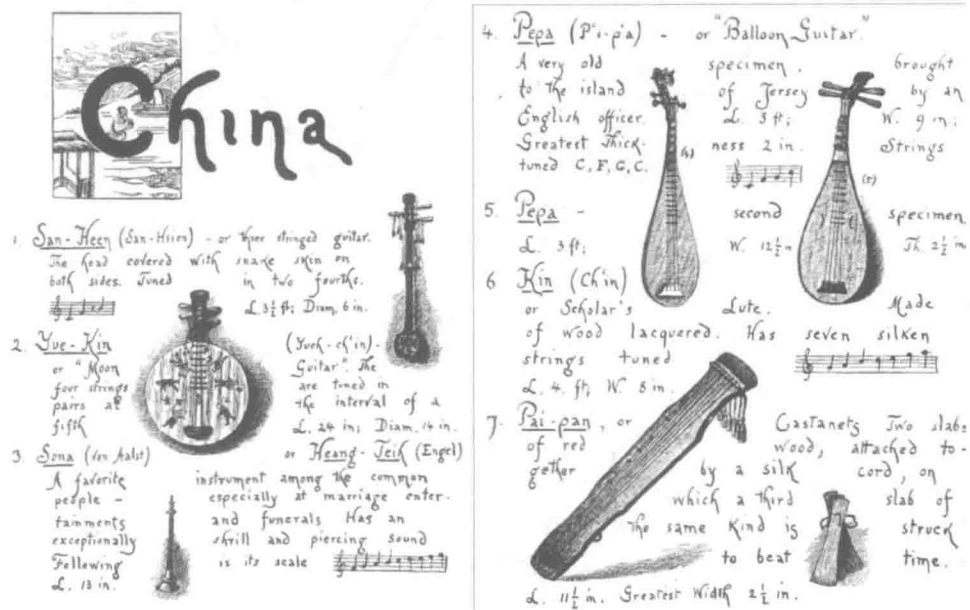 China
1. San-Heen (San-Hsien) - or three stringed guitar.
The head covered with snake skin on
both sides. Tuned in two fourths.
L. 3½ ft; Diam. 6 in.
2. Yue-Kin (Yueh-ch'in) -
or "Moon Guitar". The
four strings are tuned in
pairs at the interval of a
fifth L. 24 in; Diam. 14 in.
3. Sona (Van Aalst) or Heang-Teih (Engel)
A favorite instrument among the common
people - especially at marriage enter-
tainments and funerals Has an
exceptionally shrill and piercing sound
Following is its scale
L. 13 in.
4. Pepa (P'i-p'a) - or "Balloon Guitar."
A very old specimen, brought
to the island of Jersey by an
English officer. L. 3 ft; W. 9 in;
Greatest Thick- ness 2 in. Strings
tuned C, F, G, C. (4)
(5)
5. Pepa - second specimen
L. 3 ft; W. 12½ in Th. 2½ in
6 Kin (Ch'in)
or Scholar's Lute. Made
of wood lacquered. Has seven silken
strings tuned
L. 4 ft; W. 8 in.
7. Pai-pan, or Castanets Two slabs
of red wood, attached to-
gether by a silk cord, on
which a third slab of
the same kind is struck
to beat time.
L. 11½ in. Greatest Width 2½ in.